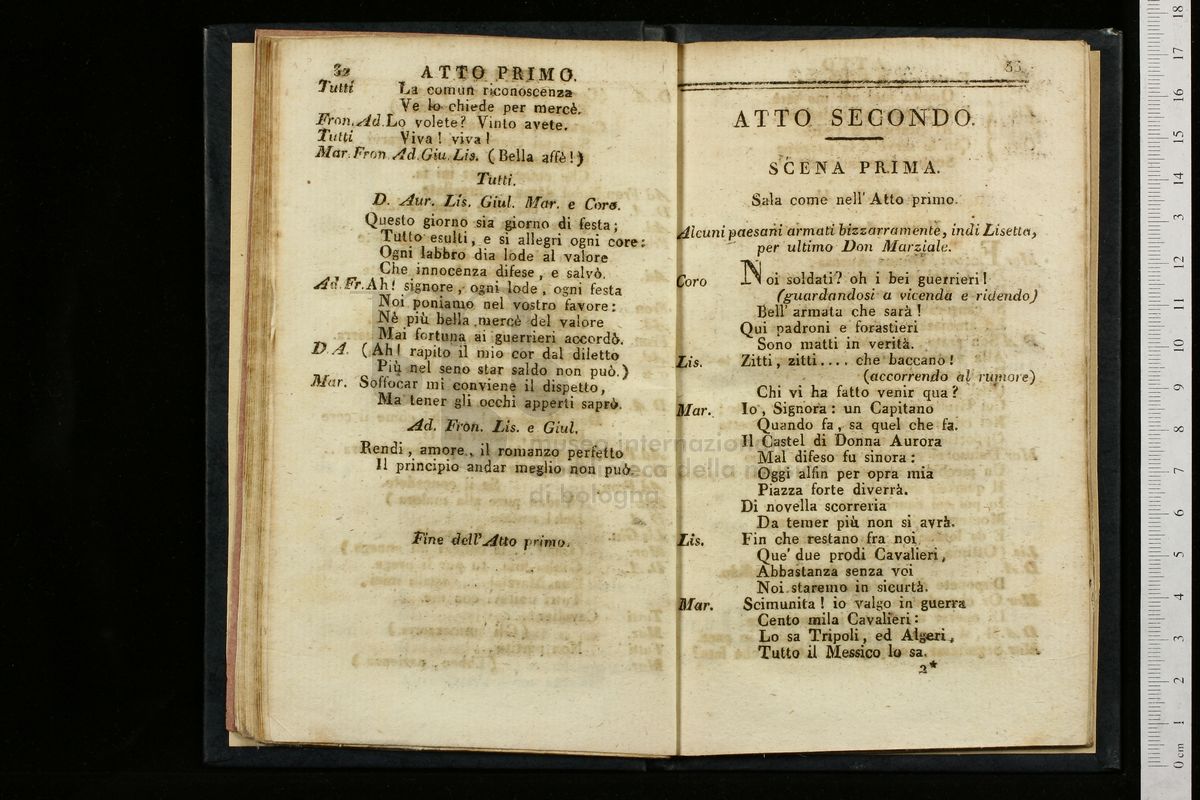 32 ATTO PRIMO.
Tutti La comun riconoscenza
Ve lo chiede per mercè.
Fron. Ad. Lo volete? Vinto avete.
Tutti Viva! viva!
Mar. Fron. Ad. Giu. Lis. (Bella affè!)
Tutti.
D. Aur. Lis. Giul. Mar. e Coro.
Questo giorno sia giorno di festa;
Tutto esulti, e si allegri ogni core:
Ogni labbro dia lode al valore
Che innocenza difese, e salvò.
Ad. Fr. Ah! signore, ogni lode, ogni festa
Noi poniamo nel vostro favore:
Nè più bella mercè del valore
Mai fortuna ai guerrieri accordò.
D. A. (Ah! rapito il mio cor dal diletto
Più nel seno star saldo non può.)
Mar. Soffocar mi conviene il dispetto,
Ma tener gli occhi apperti saprò.
Ad. Fron. Lis. e Giul.
Rendi, amore, il romanzo perfetto
Il principio andar meglio non può.
Fine dell' Atto primo.
33
ATTO SECONDO.
SCENA PRIMA.
Sala come nell' Atto primo.
Alcuni paesani armati bizzarramente, indi Lisetta,
per ultimo Don Marziale.
Coro Noi soldati? oh i bei guerrieri!
(guardandosi a vicenda e ridendo)
Bell' armata che sarà!
Qui padroni e forastieri
Sono matti in verità.
Lis. Zitti, zitti.... che baccano!
(accorrendo al rumore)
Chi vi ha fatto venir qua?
Mar. Io, Signora: un Capitano
Quando fa, sa quel che fa.
Il Castel di Donna Aurora
Mal difeso fu sinora:
Oggi alfin per opra mia
Piazza forte diverrà.
Di novella scorreria
Da temer più non si avrà.
Lis. Fin che restano fra noi
Que' due prodi Cavalieri,
Abbastanza senza voi
Noi staremo in sicurtà.
Mar. Scimunita! io valgo in guerra
Cento mila Cavalieri:
Lo sa Tripoli, ed Algeri,
Tutto il Messico lo sa.
2*
museo internazion
eca della m
di bologna
0 cm 1 2 3 4 5 6 7 8 9 10 11 12 13 14 15 16 17 18